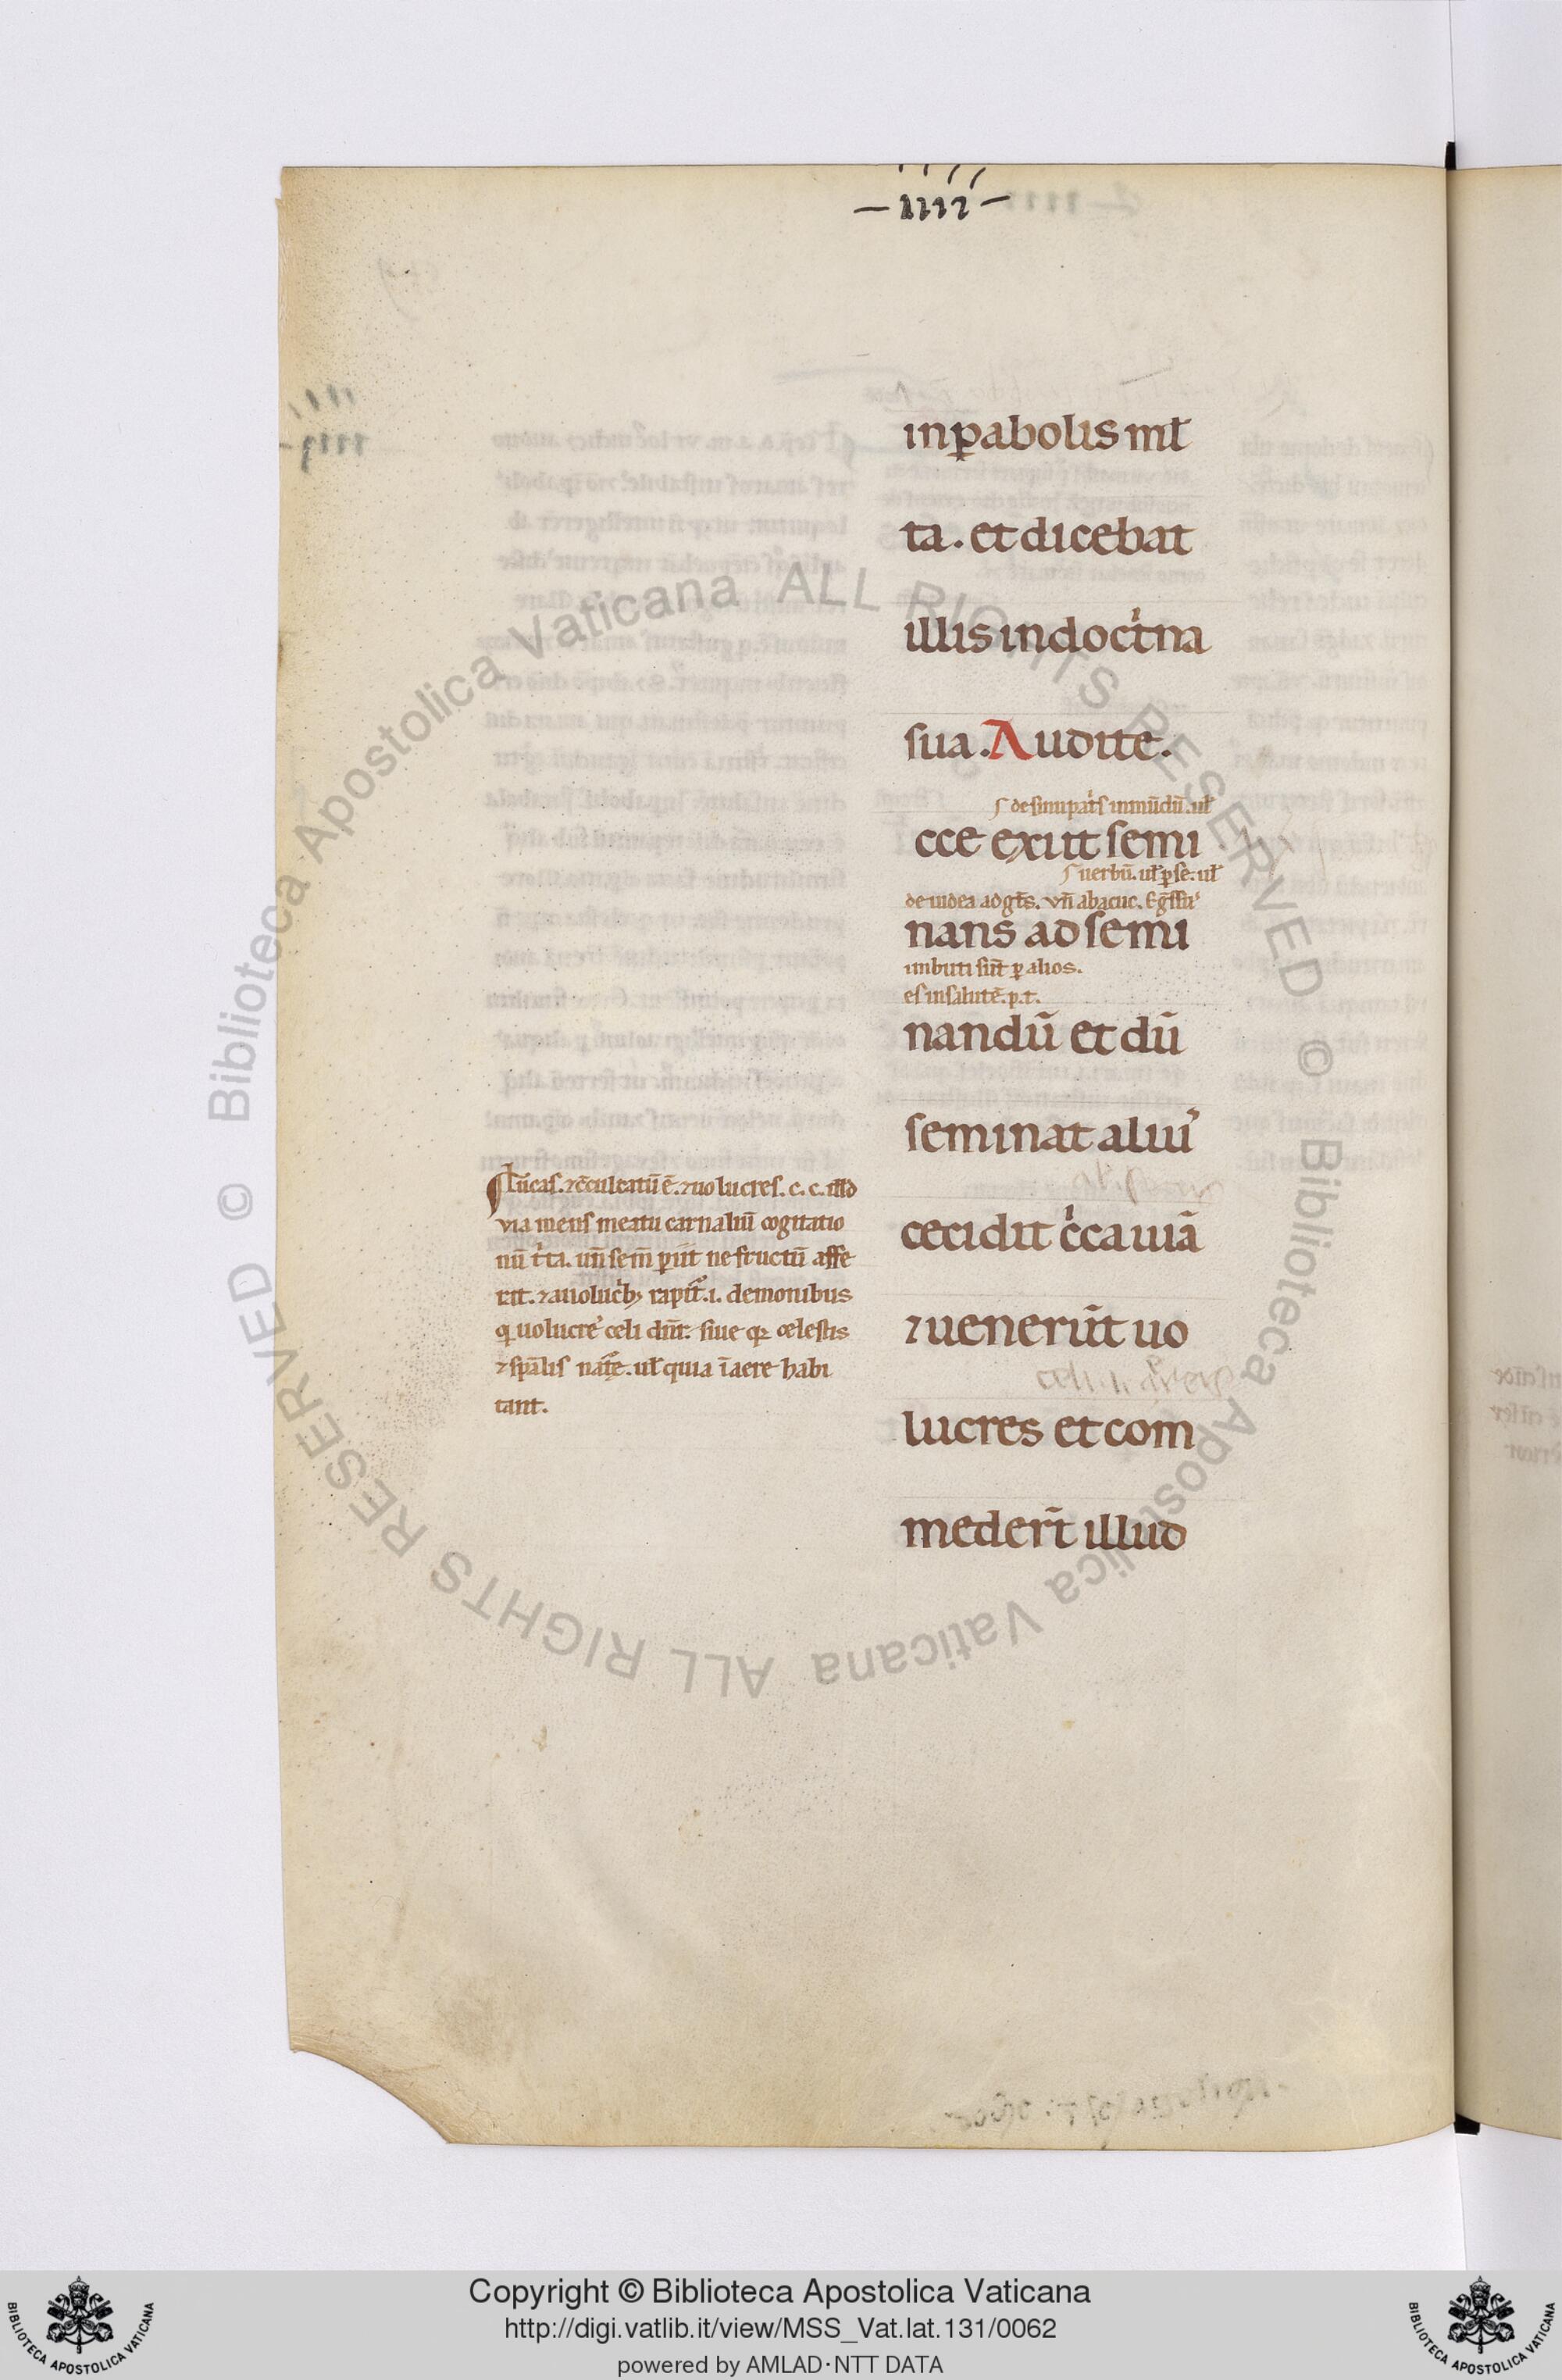 -IIII-
in ꝑabolis ml̃
ta. et dicebat
illis in doctͥna
sua. Audite.
de sinu patͥs in mũdũ. ul̃
cce exiit semi
uerbũ. ul̃ ꝑ se. ul̃
de iudea ad gẽs. vñ abacuc. Eg̃ssus
nans ad semi
imbuti sũt ꝑ alios.
es in salutẽ. p. t.
nandũ et dũ
seminat aliuᷣ
cecidit cͥca uiã
⁊ uenerũt uo
lucres et com
medert̃ illud
¶ Lucas. ⁊ cõculcatũ ẽ. ⁊ uolucres. c. c. illud
via mens meatu carnaliũ cogitatio
nũ tͥta. uñ sem̃ ꝑiit ne fructũ affe
rit. ⁊ a uolucͥbꝫ rapit̃. .i. demonibus
q uolucres celi dñr. siue qꝛ celestis
⁊ sp̃alis nat̃e. ul̃ quia ĩ aere habi
tant.
Copyright © Biblioteca Apostolica Vaticana
http://digi.vatlib.it/view/MSS_Vat.lat.131/0062
powered by AMLAD·NTT DATA
BIBLIOTECA APOSTOLICA VATICANA
BIBLIOTECA APOSTOLICA VATICANA
© Biblioteca Apostolica Vaticana ALL RIGHTS RESERVED © Biblioteca Apostolica Vaticana ALL RIGHTS RESERVED